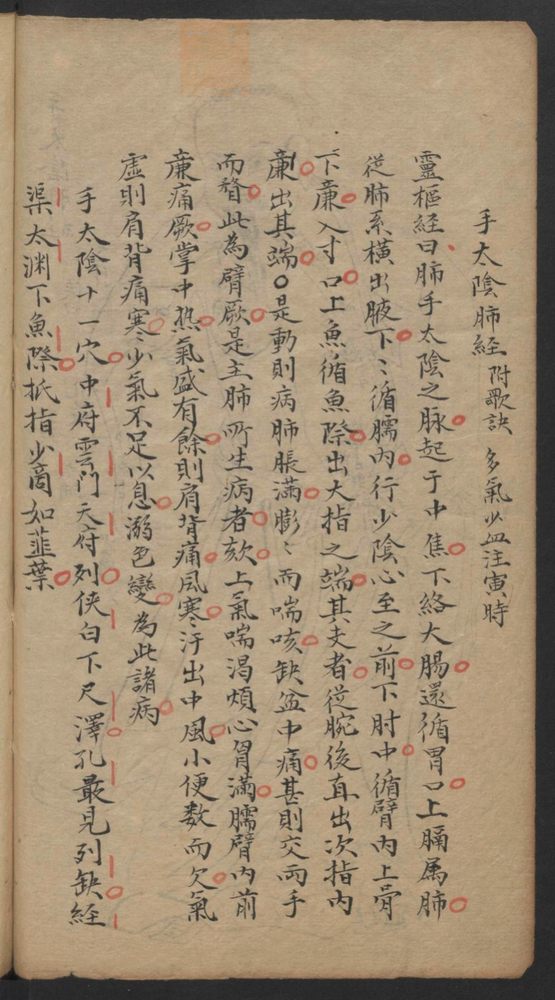 手太陰肺經附歌訣 多氣少血注寅時
靈樞經曰肺手太陰之脉起于中焦下絡大腸還循胃口上膈属肺
從肺系横出腋下〻循臑內行少陰心至之前下肘中循臂內上骨
下亷入寸口上魚循魚際出大指之端其支者從腕後直出次指內
亷出其端○是動則病肺脹滿膨〻而喘咳缺盆中痛甚則交両手
而瞀此為臂厥是主肺所生病者欬上氣喘渴煩心胷滿臑臂內前
亷痛厥掌中热氣盛有餘則肩背痛風寒汗出中風小便数而欠氣
虛則肩背痛寒少氣不足以息溺色變為此諸病
手太陰十一穴中府雲門天府列侠白下尺澤孔最見列缺經
渠太渊下魚際抵指少商如韮葉